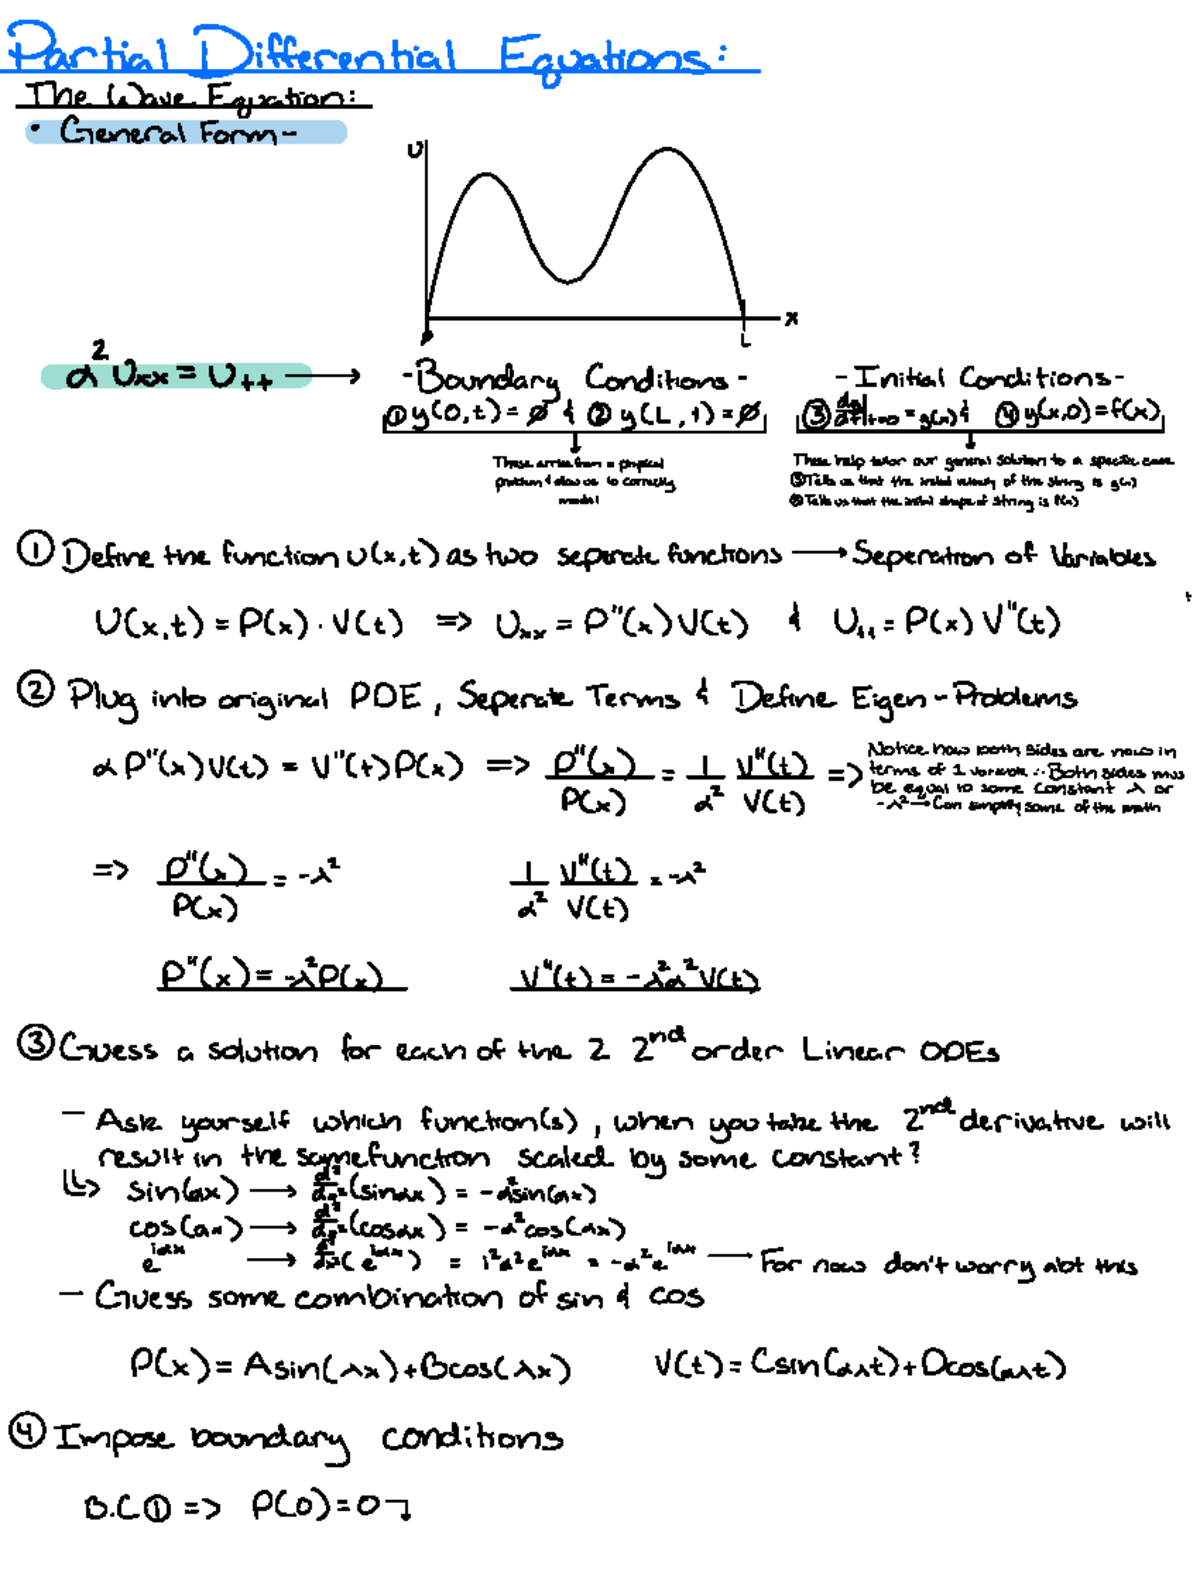 Partial Differential Equations:
The Wave Equation:
• General Form-
U
x
L
α² Uxx = Utt →
-Boundary Conditions-
① y(0,t) = ∅ & ② y(L,t) = ∅
These arrise from a physical
problem & allow us to correctly
model
-Initial Conditions-
③ dy/dt|t=0 = g(x) & ④ y(x,0) = f(x)
These help tailor our general solution to a specific case
③ Tells us that the initial velocity of the string is g(x)
④ Tells us that the initial shape of string is f(x)
① Define the function U(x,t) as two seperate functions → Seperation of Variables
U(x,t) = P(x) · V(t) => Uxx = P''(x)V(t) & Utt = P(x)V''(t)
② Plug into original PDE, Seperate Terms & Define Eigen-Problems
α P''(x)V(t) = V''(t)P(x) => P''(x)/P(x) = 1/α² V''(t)/V(t) =>
Notice how both sides are now in
terms of 1 variable ∴ Both sides must
be equal to some constant λ or
-λ² → Can simplify some of the math
=> P''(x)/P(x) = -λ² 1/α² V''(t)/V(t) = -λ²
P''(x) = -λ²P(x) V''(t) = -λ²α²V(t)
③ Guess a solution for each of the 2 2nd order Linear ODEs
- Ask yourself which function(s), when you take the 2nd derivative will
result in the same function scaled by some constant?
↳ sin(αx) → d²/dx²(sinαx) = -α²sin(αx)
cos(αx) → d²/dx²(cosαx) = -α²cos(αx)
e^iαx → d²/dx²(e^iαx) = i²α²e^iαx = -α²e^iαx — For now don't worry abt this
- Guess some combination of sin & cos
P(x) = Asin(λx)+Bcos(λx) V(t) = Csin(αλt)+Dcos(αλt)
④ Impose boundary conditions
B.C① => P(0)=0